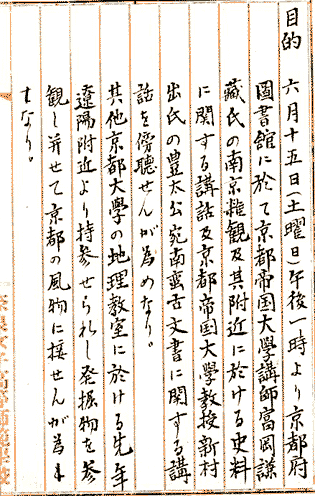 目的　六月十五日(土曜日)午後一時より京都府
圖書館に於て京都帝国大學講師富岡謙
藏氏の南京雜観及其附近に於ける史料
に関する講話及京都帝国大學教授新村
出氏の豊太公宛南蛮古文書に関する講
話を傍聽せんが為めなり。
其他京都大學の地理教室に於ける先年
遼陽附近より持参せられし発掘物を参
観し并せて京都の風物に接せんが為
なり。